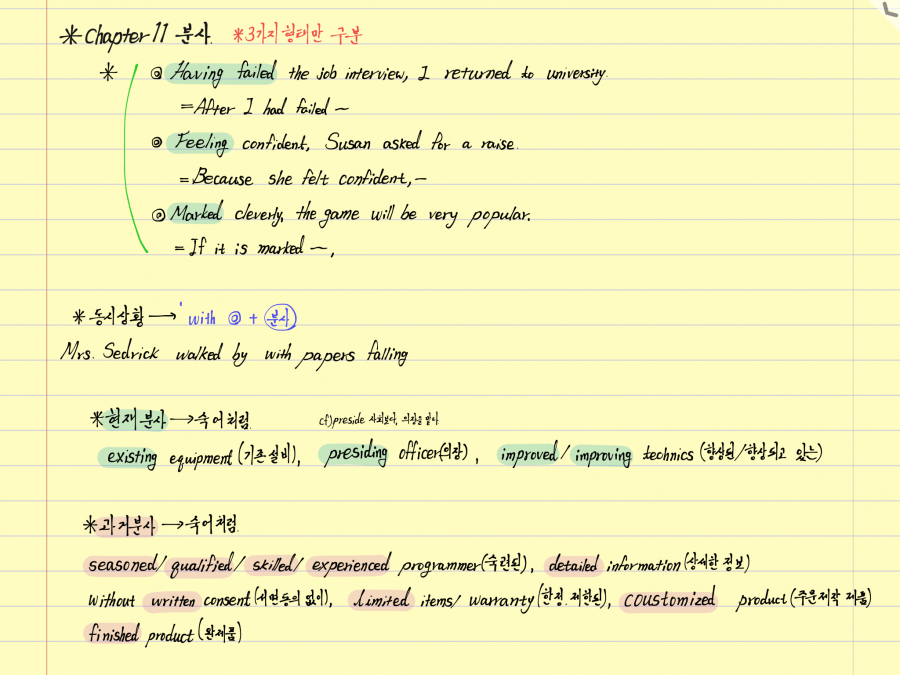 * Chapter 11 분사. *3가지 형태만 구분
* ⓐ Having failed the job interview, I returned to university.
= After I had failed ~
ⓐ Feeling confident, Susan asked for a raise.
= Because she felt confident, ~
ⓐ Marked cleverly, the game will be very popular.
= If it is marked ~,
* 동시상황 → with ⓐ + 분사
Mrs. Sedrick walked by with papers falling
* 현재분사 → 숙어처럼 cf) preside 사회보다, 의장을 맡다
existing equipment (기존 설비), presiding officer (의장), improved / improving technics (향상된/향상되고 있는)
* 과거분사 → 숙어처럼
seasoned / qualified / skilled / experienced programmer (숙련된), detailed information (상세한 정보)
without written consent (서면동의 없이), limited items / warranty (한정. 제한된), coustomized product (주문제작 제품)
finished product (완제품)